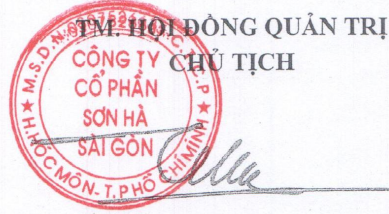 TM. HỘI ĐỒNG QUẢN TRỊ
CHỦ TỊCH
CÔNG TY
CỔ PHẦN
SƠN HÀ
SÀI GÒN
H.HÓC MÔN - T.PHỐ CHÍ MINH